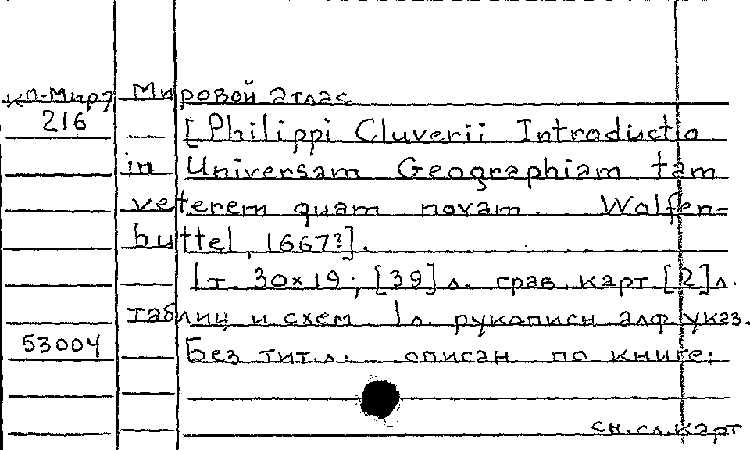 КП-Мир7 Мировой атлас
216 [Philippi Cluverii Introductio
in Universam Geographiam tam
veterem quam novam. Wolfen=
buttel, 1667?].
1т. 30x19; [39] л. грав. карт [2] л.
таблиц и схем 1л. рукописн алф указ.
53004 Без тит. л. описан по книге:
см. сл. карт